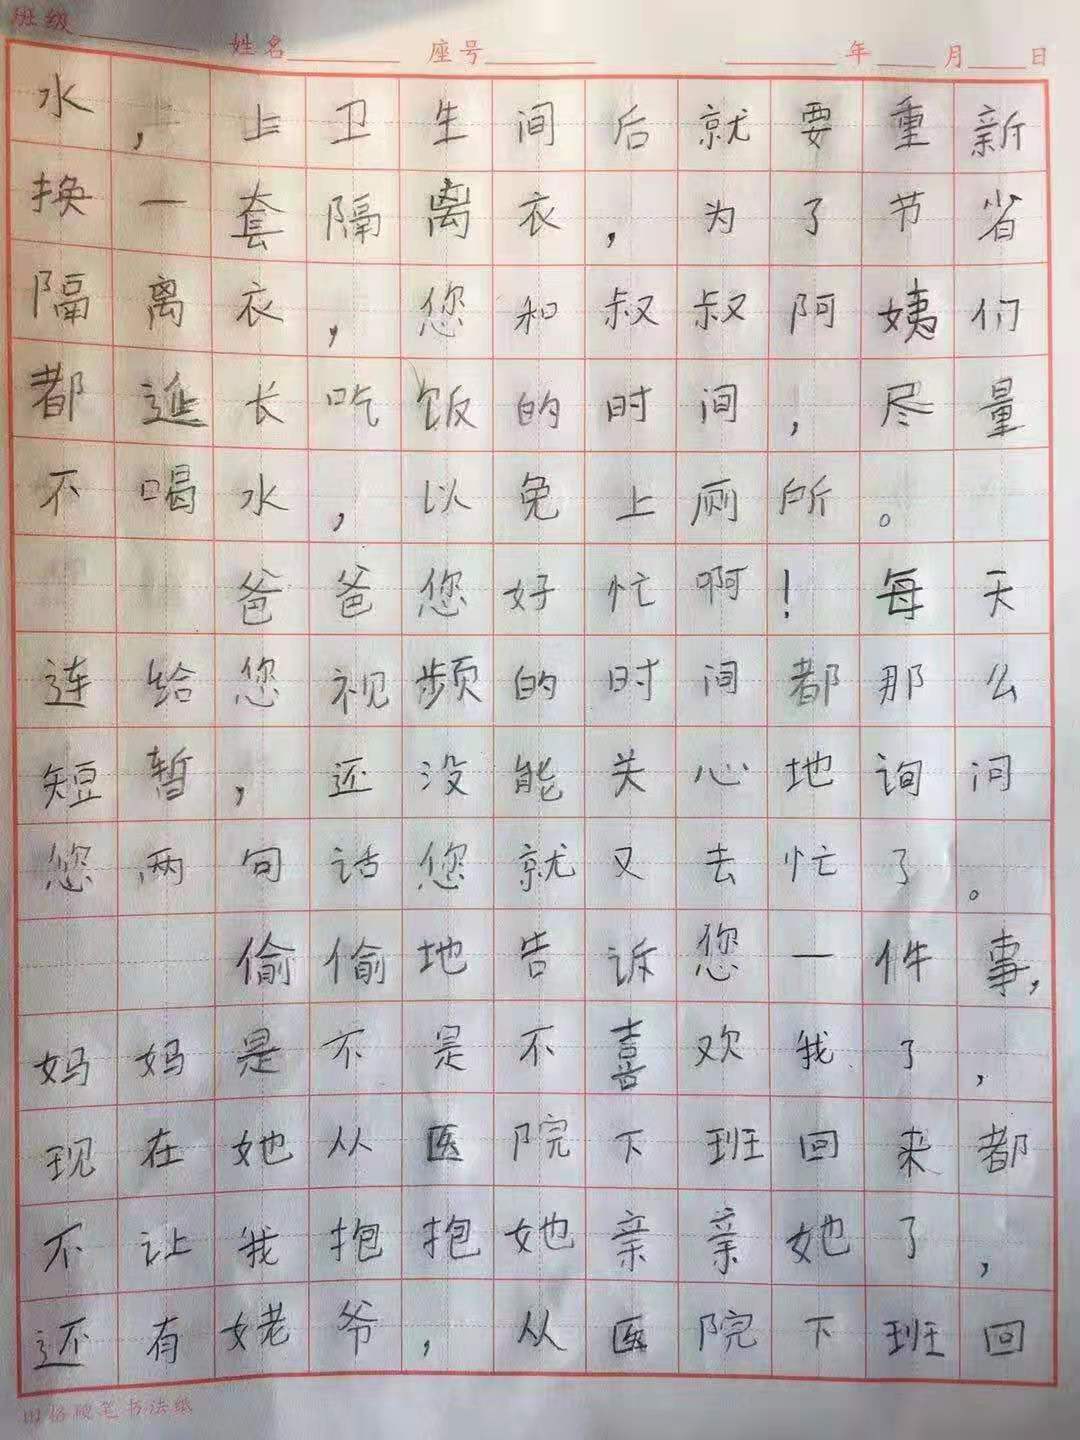 班级 姓名 座号 年 月 日
水，上卫生间后就要重新
换一套隔离衣，为了节省
隔离衣，您和叔叔阿姨们
都延长吃饭的时间，尽量
不喝水，以免上厕所。
爸爸您好忙啊！每天
连给您视频的时间都那么
短暂，还没能关心地询问
您两句话您就又去忙了。
偷偷地告诉您一件事，
妈妈是不是不喜欢我了，
现在她从医院下班回来都
不让我抱抱她亲亲她了，
还有姥爷，从医院下班回
田格硬笔书法纸